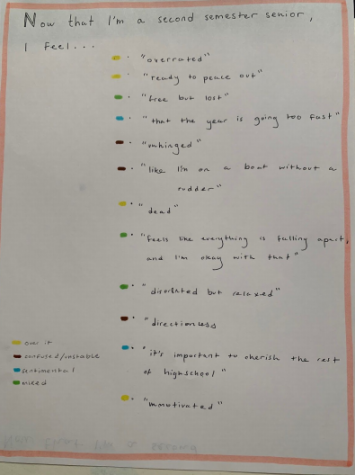 Now that I'm a second semester senior,
I feel...
"overrated"
"ready to peace out"
"free but lost"
"that the year is going too fast"
"unhinged"
"like I'm on a boat without a
rudder"
"dead"
"feels like everything is falling apart,
and I'm okay with that"
"disoriented but relaxed"
"directionless
"it's important to cherish the rest
of highschool"
"unmotivated"
over it
confused/unstable
sentimental
mixed